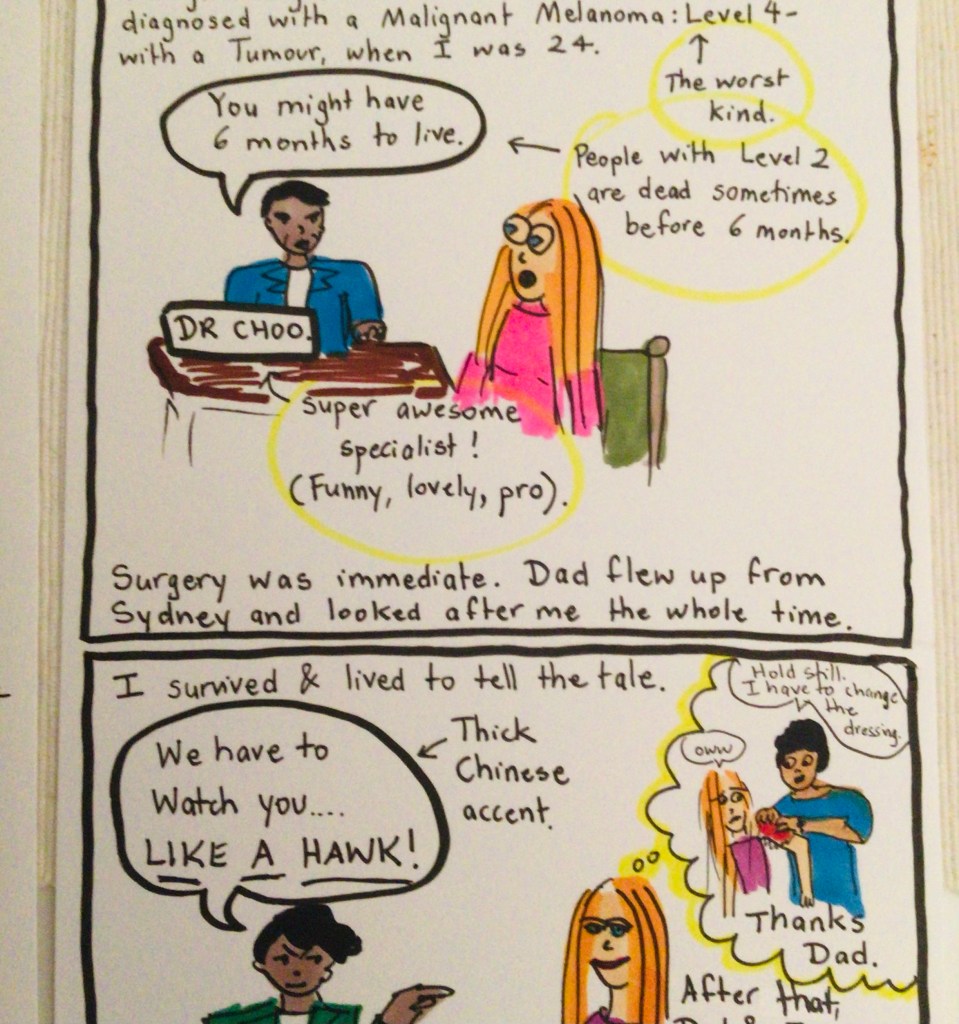 diagnosed with a Malignant Melanoma: Level 4-
with a Tumour, when I was 24.
The worst
kind.
You might have
6 months to live.
People with Level 2
are dead sometimes
before 6 months.
DR CHOO.
Super awesome
specialist!
(Funny, lovely, pro).
Surgery was immediate. Dad flew up from
Sydney and looked after me the whole time.
I survived & lived to tell the tale.
We have to
Watch you....
LIKE A HAWK!
Thick
Chinese
accent.
Hold still.
I have to change
the
dressing.
OWW
Thanks
Dad.
After that,